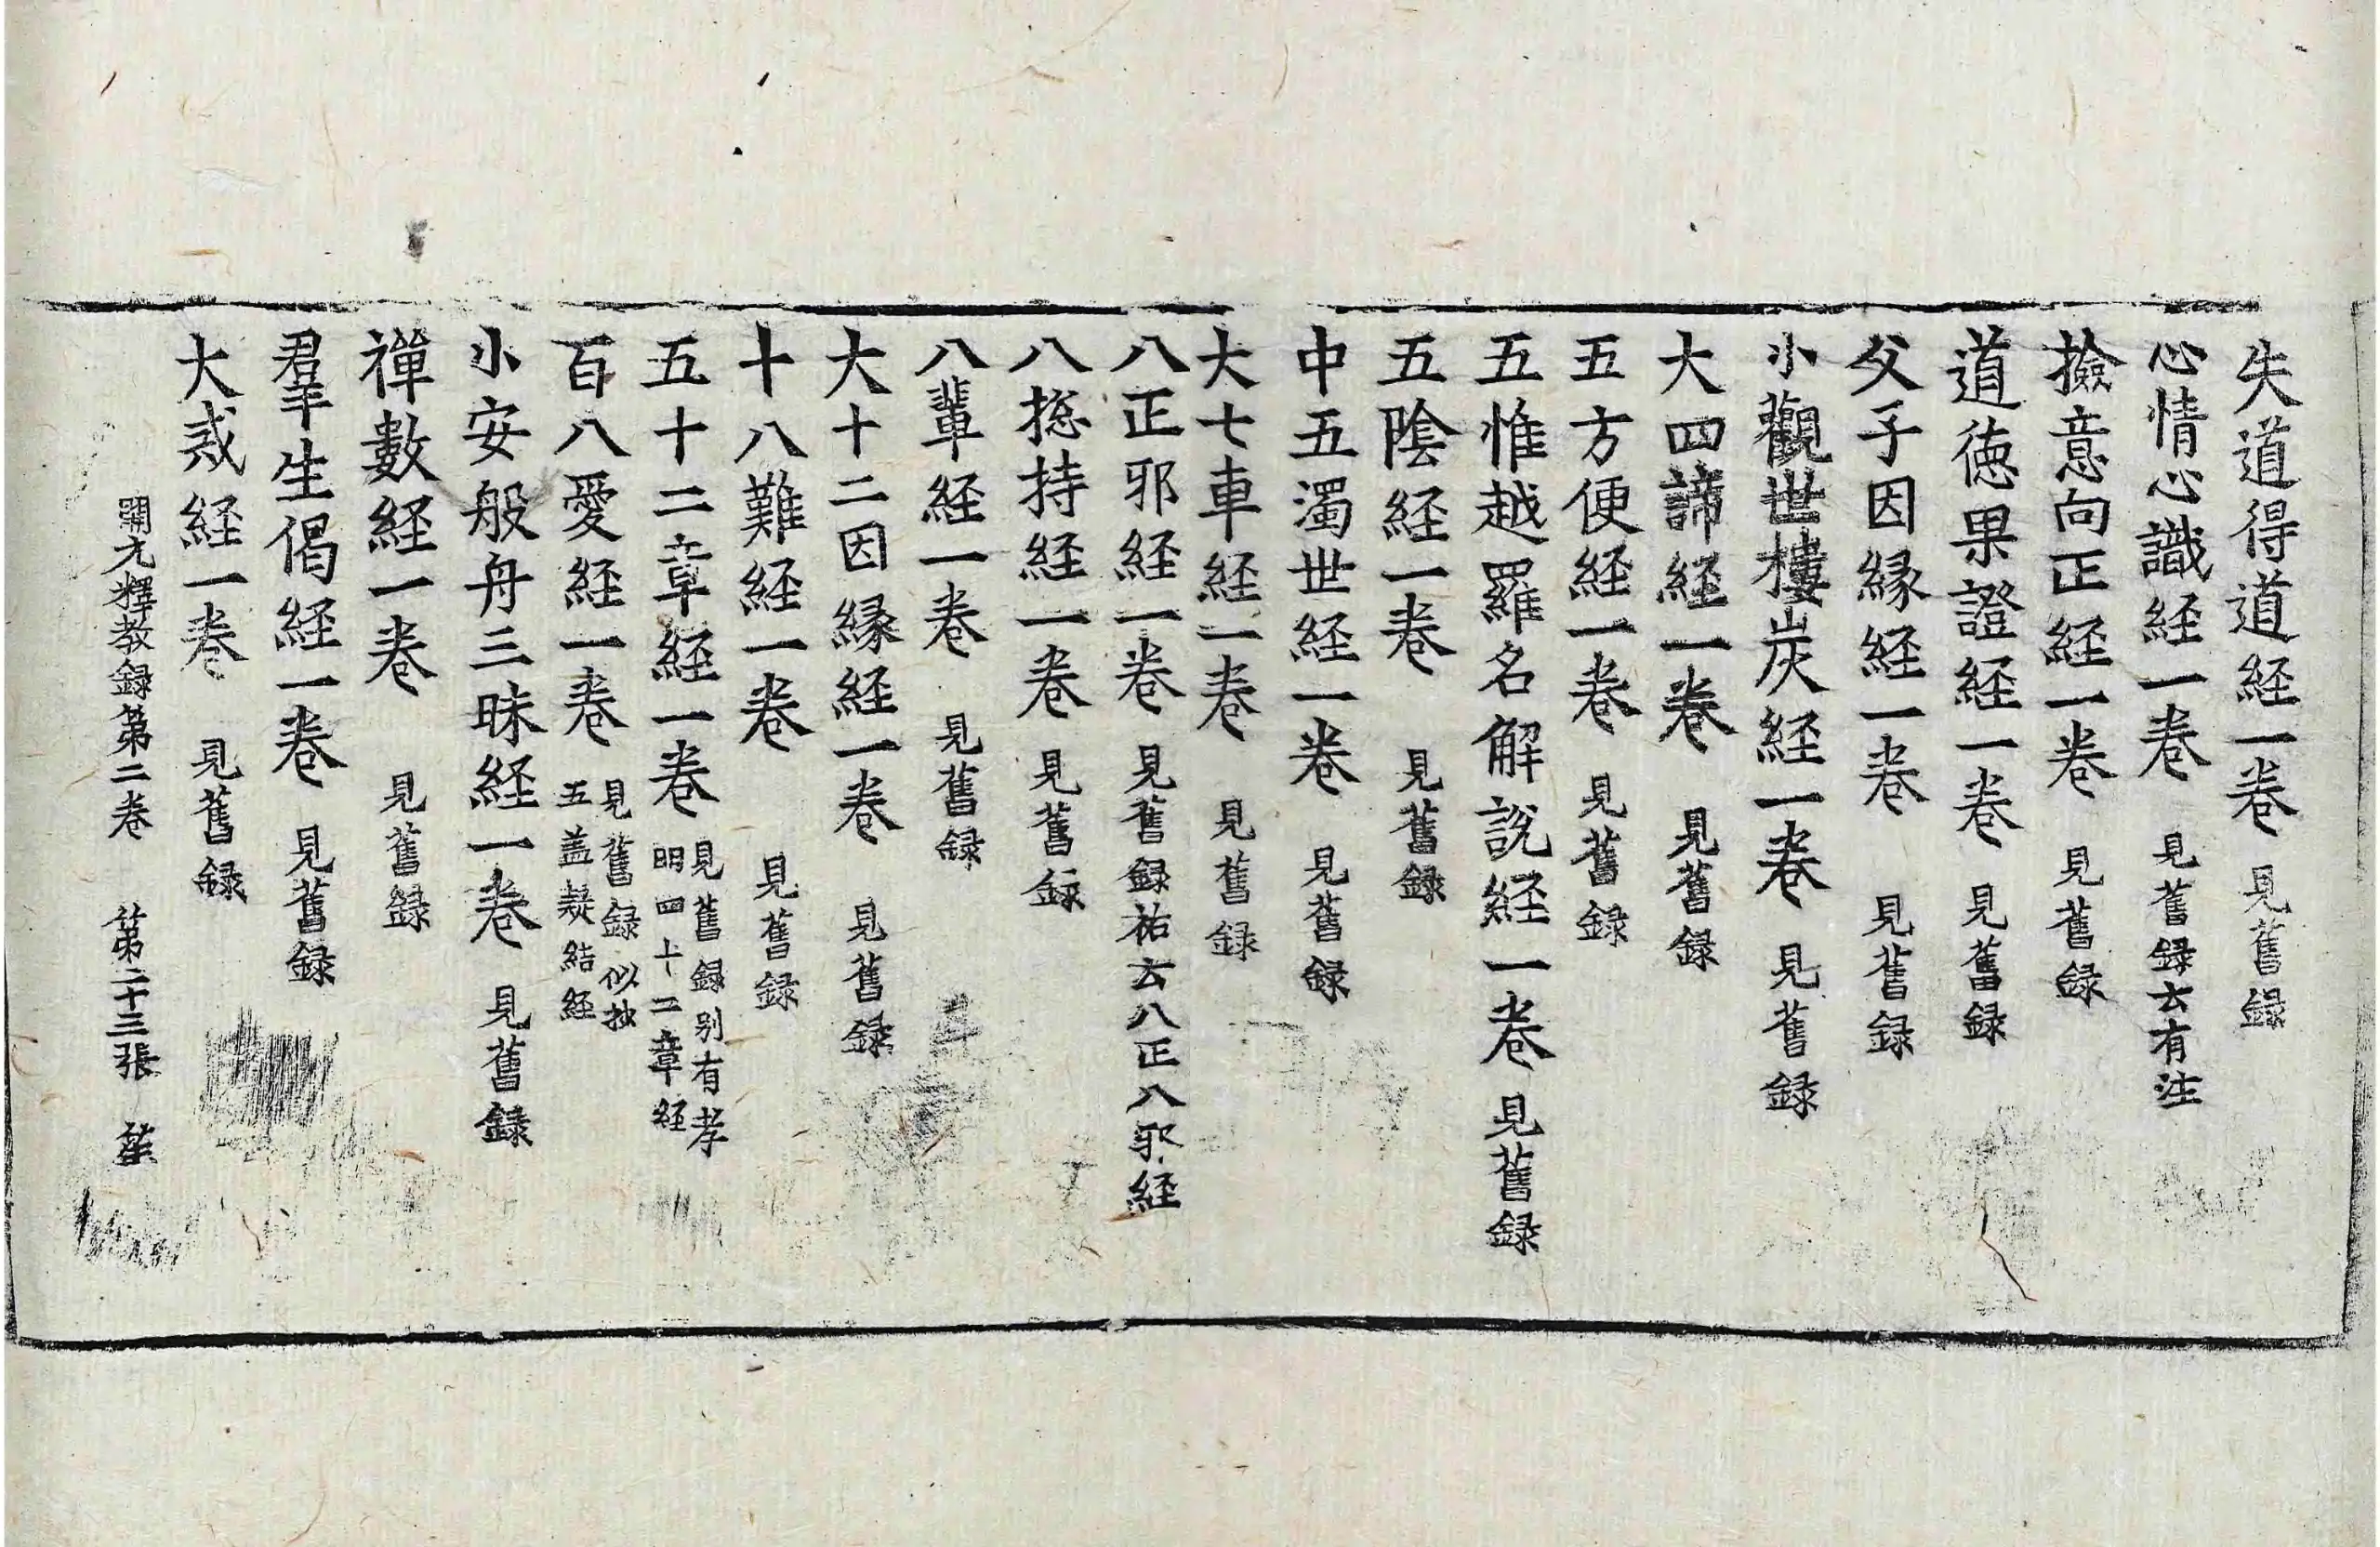 失道得道経一卷 見舊録
心情心識経一卷 見舊録云有注
撿意向正経一卷 見舊録
道徳果證経一卷 見舊録
父子因縁経一卷 見舊録
小觀世樓炭経一卷 見舊録
大四諦経一卷 見舊録
五方便経一卷 見舊録
五惟越羅名解説経一卷 見舊録
五陰経一卷 見舊録
中五濁世経一卷 見舊録
大七車経一卷 見舊録
八正邪経一卷 見舊録祐云八正八邪経
八捴持経一卷 見舊録
八輩経一卷 見舊録
大十二因縁経一卷 見舊録
十八難経一卷 見舊録
五十二章経一卷 見舊録别有孝
明四十二章経
百八愛経一卷 見舊録似抄
五盖疑結経
小安般舟三昧経一卷 見舊録
禪數経一卷 見舊録
羣生偈経一卷 見舊録
大惑経一卷 見舊録
開元釋教録第二卷 第二十三張